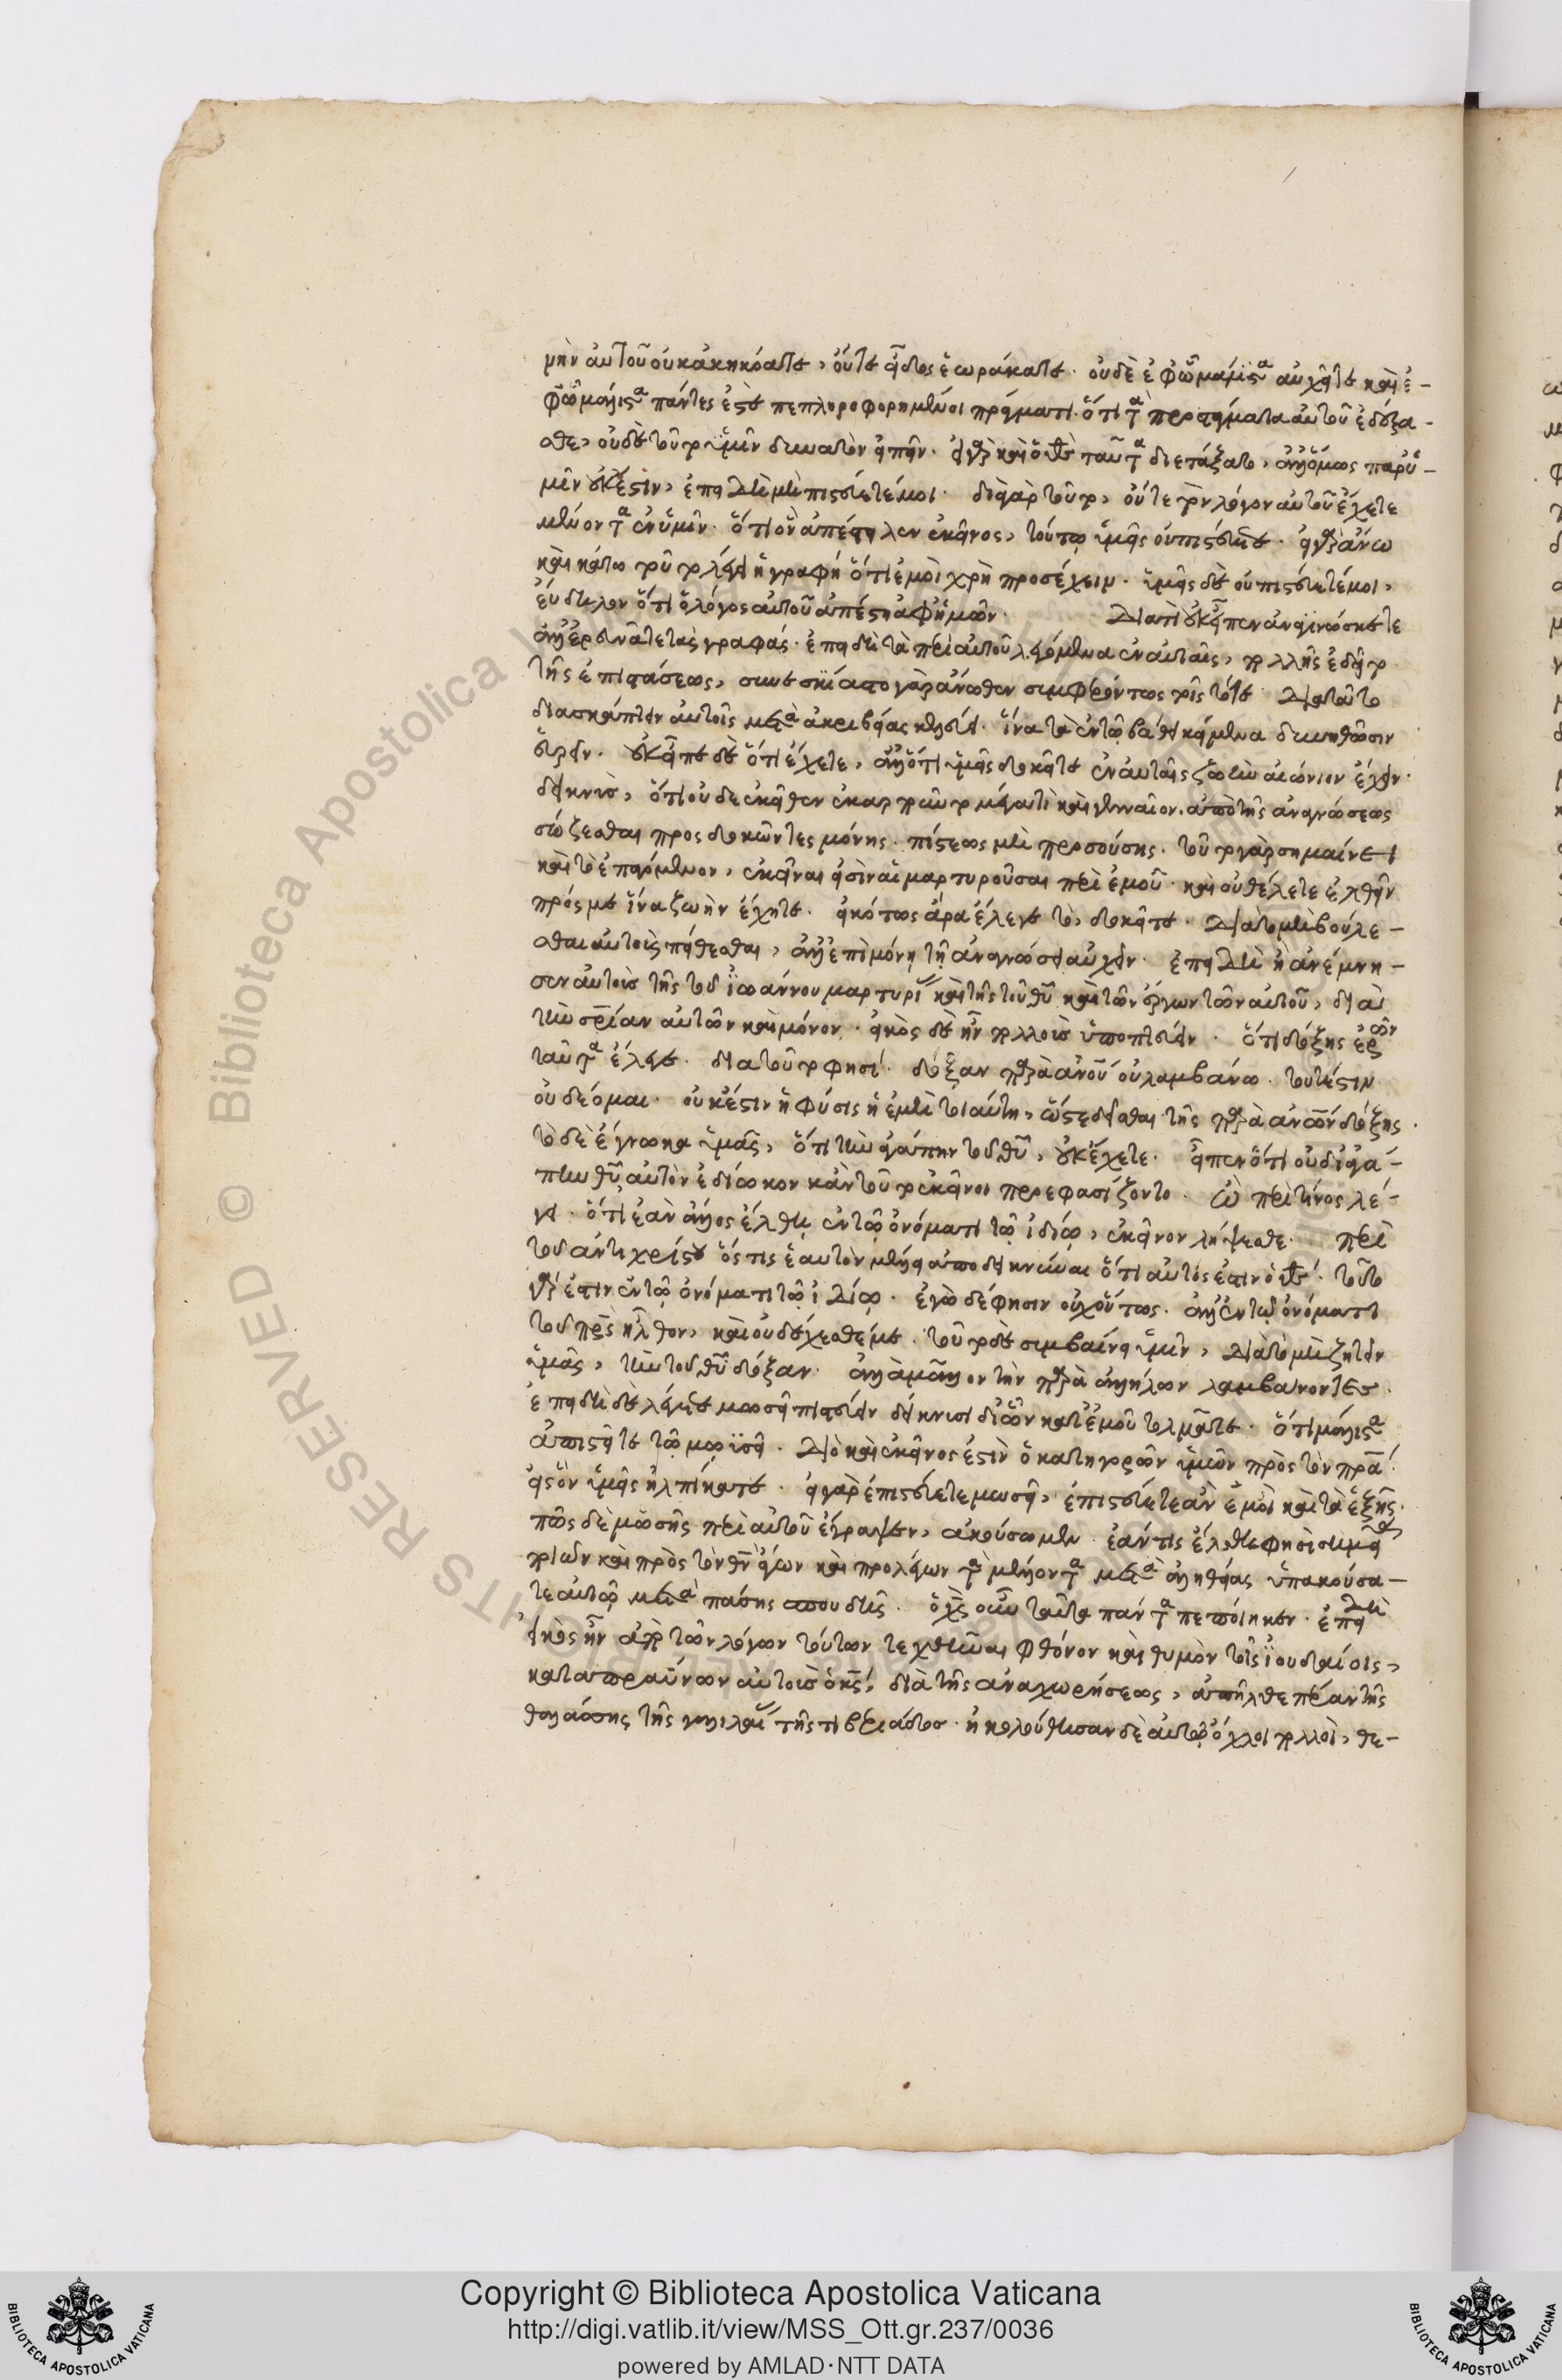 μὴν αὐτοῦ οὐκ ἀκηκόατε, οὔτε εἶδος ἑωράκατε. οὐδὲ ἐφ' ὧ μάλιστα αὐχεῖτε καὶ ἐ-
φ' ὧ μάλιστα πάντες ἐστὲ πεπληροφορημένοι πράγματι. ὅτι τὰ προστάγματα αὐτοῦ ἐδέξα-
σθε, οὐδὲ τοῦτο ὑμῖν δυνατὸν εἰπεῖν. εἰ γὰρ καὶ ὁ θεὸς ταῦτα διετάξατο, ἀλλ' ὅμως παρ' ὑ-
μῖν οὐκ ἔστιν, ἐπειδὴ μὴ πιστεύετέ μοι. διὰ γὰρ τοῦτο, οὔτε τὸν λόγον αὐτοῦ ἔχετε
μένοντα ἐν ὑμῖν. ὅτι ὃν ἀπέστειλεν ἐκεῖνος, τούτω ὑμεῖς οὐ πιστεύετε. εἰ γὰρ ἄνω
καὶ κάτω τοῦτο λέγει ἡ γραφὴ ὅτι ἐμοὶ χρὴ προσέχειν. ὑμεῖς δὲ οὐ πιστεύετέ μοι,
εὔδηλον ὅτι ὁ λόγος αὐτοῦ ἀπέστη ἀφ' ἡμῶν. Διατί οὐκ εἶπεν ἀναγινώσκετε
ἀλλ' ἐρευνᾶτε τὰς γραφάς. ἐπειδὴ τὰ περὶ αὐτοῦ λεγόμενα ἐν αὐταῖς, πολλῆς ἐδεῖτο
τῆς ἐπιστάσεως, συνεσκίαστο γὰρ ἄνωθεν συμφερόντως τοῖς τότε. Διὰ τοῦτο
διασκάπτειν αὐτοῖς μετὰ ἀκριβείας κελεύει. ἵνα τὰ ἐν τῶ βάθει κείμενα δυνηθῶσιν
εὑρεῖν. οὐκ εἶπε δὲ ὅτι ἔχετε, ἀλλ' ὅτι ὑμεῖς δοκεῖτε ἐν αὐταῖς ζωὴν αἰώνιον ἔχειν.
δεικνὺς, ὅτι οὐδὲ ἐκεῖθεν ἐκαρποῦντο μέγα τὶ καὶ γενναῖον. ἀπὸ τῆς ἀναγνώσεως
σώζεσθαι προσδοκῶντες μόνης. πίστεως μὴ προσούσης. τοῦτο γὰρ σημαίνει
καὶ τὸ ἐπαγόμενον, ἐκεῖναι εἰσὶν αἱ μαρτυροῦσαι περὶ ἐμοῦ. καὶ οὐ θέλετε ἐλθεῖν
πρός με ἵνα ζωὴν ἔχητε. εἰκότως ἄρα ἔλεγε τὸ, δοκεῖτε. Διὰ τὸ μὴ βούλε-
σθαι αὐτοὺς πείθεσθαι, ἀλλ' ἐπὶ μόνη τῆ ἀναγνώσει αὐχεῖν. ἐπειδὴ ἢ ἀνέμνη-
σεν αὐτοὺς τῆς τοῦ ἰωάννου μαρτυρί καὶ τῆς τοῦ θυ καὶ τῶν ἔργων τῶν αὐτοῦ, διὰ
τὴν σρίαν αὐτῶν καὶ μόνον. εἰκὸς δὲ ἦν πολλοὺς ὑποπτεύειν. ὅτι δόξης ἐρῶν
ταῦτα ἔλεγε. διὰ τοῦτο φησί. δόξαν παρὰ ἀνου οὐ λαμβάνω. τουτέστιν
οὐ δέομαι. οὐκ ἔστιν ἡ φύσις ἡ ἐμὴ τοιαύτη, ὥστε δεῖσθαι τῆς παρὰ ἀνων δόξης.
τὸ δὲ ἔγνωκα ὑμᾶς, ὅτι τὴν ἀγάπην τοῦ θυ, οὐκ ἔχετε. εἶπεν ὅτι οὐ δι' ἀγά-
πην θυ αὐτὸν ἐδίωκον κἂν τοῦτο ἐκεῖνοι προεφασίζοντο. ὦ περὶ τίνος λέ-
γει. ὅτι ἐὰν ἄλλος ἔλθη ἐν τῶ ὀνόματι τῶ ἰδίω, ἐκεῖνον λήψεσθε. περὶ
τοῦ ἀντιχρίστου ὅστις ἑαυτὸν μέλλει ἀποδεικνύναι ὅτι αὐτός ἐστιν ὁ θεός. τοῦτο
γάρ ἐστιν ἐν τῶ ὀνόματι τῶ ἰδίω. ἐγὼ δέ φησιν οὐχ οὕτως. ἀλλ' ἐν τῶ ὀνόματι
τοῦ πρς ἦλθον, καὶ οὐ δέχεσθέ με. τοῦτο δὲ συμβαίνει ὑμῖν, Διὰ τὸ μὴ ζητεῖν
ὑμᾶς, τὴν τοῦ θυ δόξαν. ἀλλὰ μᾶλλον τὴν παρὰ ἀλλήλων λαμβάνοντες.
ἐπειδὴ δὲ λέγετε μωσῆ πιστεύειν δείκνυσι δι' ὧν κατ' ἐμοῦ τολμᾶτε. ὅτι μάλιστα
ἀπιστεῖτε τῶ μωϋσῆ. Διὸ καὶ ἐκεῖνος ἐστὶν ὁ κατηγορῶν ὑμῶν πρὸς τὸν πρα.
εἰς ὃν ὑμεῖς ἠλπίκατε. εἰ γὰρ ἐπιστεύετε μωσῆ, ἐπιστεύετε ἂν ἐμοὶ καὶ τὰ ἑξῆς.
πῶς δὲ μωσῆς περὶ αὐτοῦ ἔγραψεν, ἀκούσωμεν. ἐάν τις ἔλθη φησὶ σημεῖα
ποιῶν καὶ πρὸς τὸν θν ἄγων καὶ προλέγων τὰ μέλλοντα μετὰ ἀληθείας ὑπακούσα-
τε αὐτῶ μετὰ πάσης σπουδῆς. ὁ χς οὖν ταῦτα πάντα πεποίηκεν. ἐπειδὴ
εἰκὸς ἦν ἀπὸ τῶν λόγων τούτων τεχθῆναι φθόνον καὶ θυμὸν τοῖς ἰουδαίοις,
καταπραΰνων αὐτοὺς ὁ κς, διὰ τῆς ἀναχωρήσεως, ἀπῆλθε πέραν τῆς
θαλάσσης τῆς γαλιλαί τῆς τιβεριάδος. ἠκολούθησαν δὲ αὐτῶ ὄχλοι πολλοὶ, θε-
BIBLIOTECA APOSTOLICA VATICANA
Copyright © Biblioteca Apostolica Vaticana
http://digi.vatlib.it/view/MSS_Ott.gr.237/0036
powered by AMLAD·NTT DATA
BIBLIOTECA APOSTOLICA VATICANA